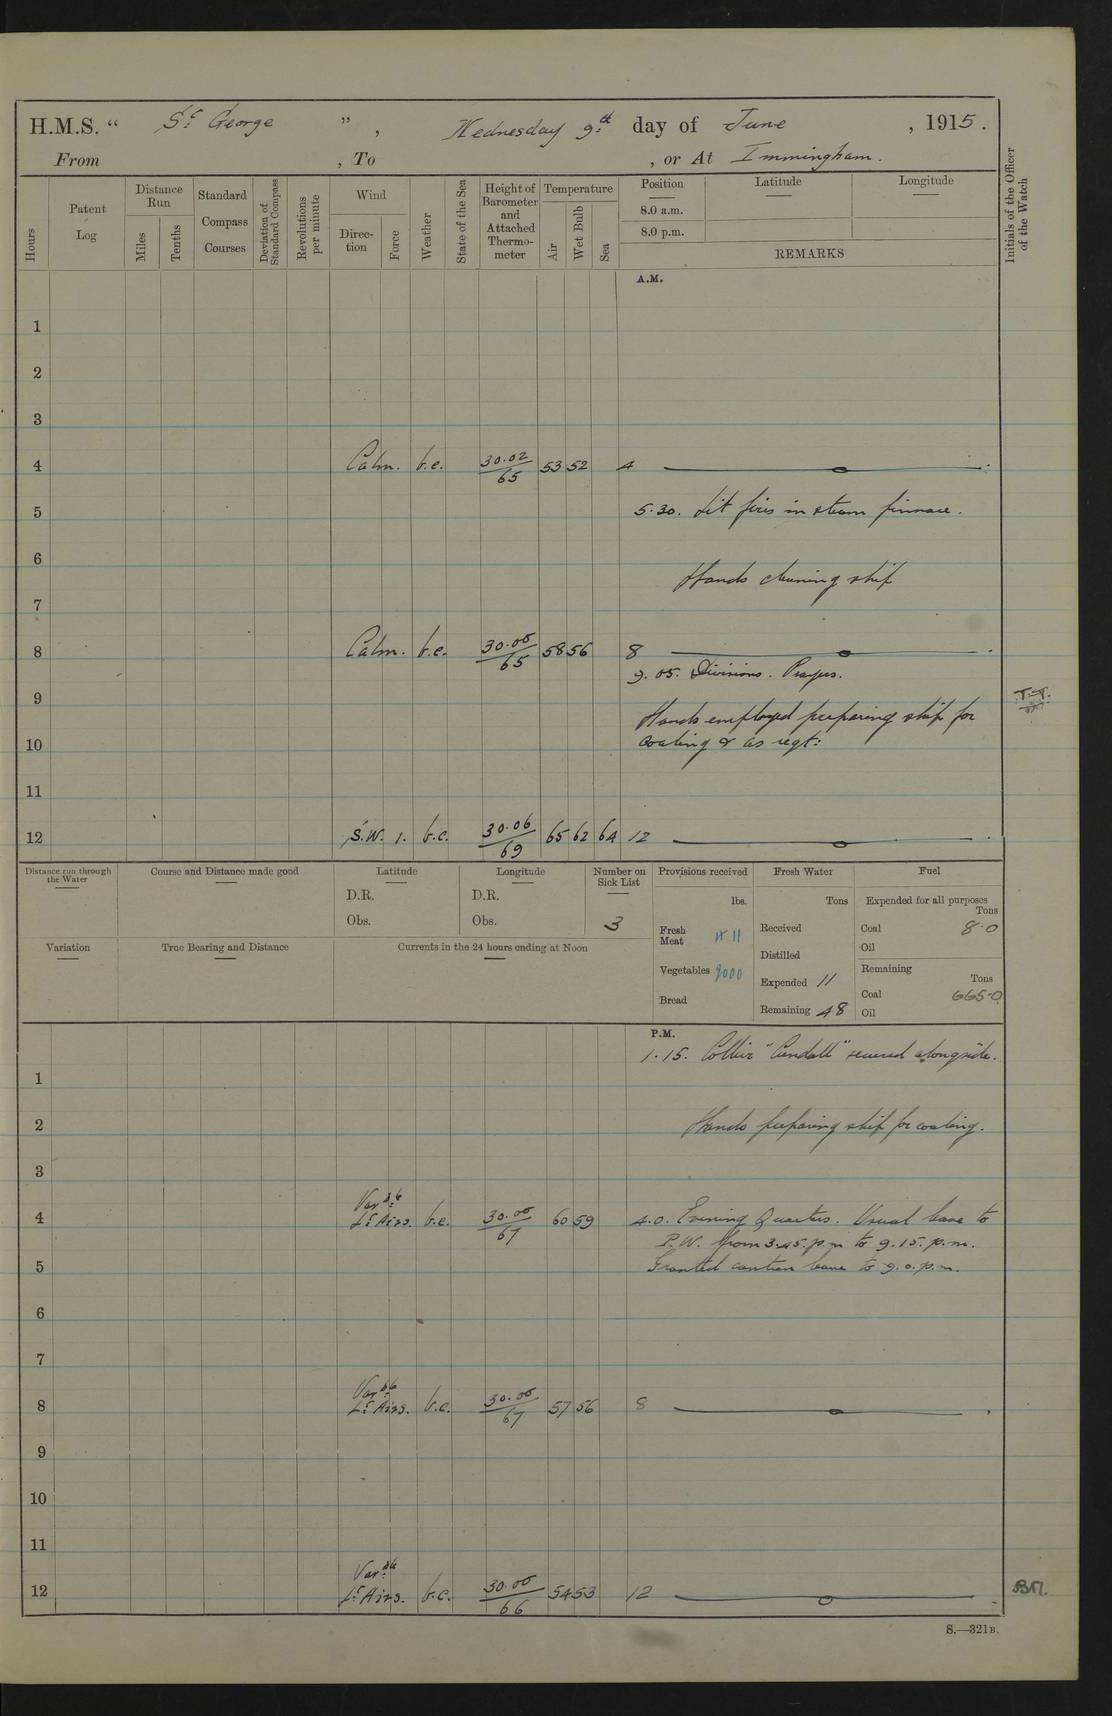 H.M.S. “ St George ” , Wednesday 9th day of June , 1915.
From , To , or At Immingham.
Hours
Patent Log
Distance Run
Miles
Tenths
Standard Compass Courses
Deviation of Standard Compass
Revolutions per minute
Wind
Direction
Force
Weather
State of the Sea
Height of Barometer and Attached Thermometer
Temperature
Air
Wet Bulb
Sea
Position
8.0 a.m.
8.0 p.m.
Latitude
Longitude
REMARKS
Initials of the Officer of the Watch
A.M.
1
2
3
4 Calm. b.c. 30.02/65 53 52 4
5 5.30. Lit fires in steam pinnace.
6
Hands cleaning ship
7
8 Calm. b.c. 30.05/65 58 56 8
9.05. Divisions. Prayers.
9
Hands employed preparing ship for
10 coaling & as reqt:
11
12 S.W. 1. b.c. 30.06/69 65 62 64 12
Distance run through the Water
Course and Distance made good
Latitude
D.R.
Obs.
Longitude
D.R.
Obs.
Number on Sick List
3
Provisions received
lbs.
Fresh Meat 411
Vegetables 2000
Bread
Fresh Water
Tons
Received
Distilled
Expended 11
Remaining 48
Fuel
Expended for all purposes
Tons
Coal 8.0
Oil
Remaining
Tons
Coal 665.0
Oil
Variation
True Bearing and Distance
Currents in the 24 hours ending at Noon
P.M.
1.15. Collier "Cundall" secured alongside.
1
2 Hands preparing ship for coaling.
3
Varble
4 Lt Airs. b.c. 30.05/67 60 59 4.0. Evening Quarters. Usual leave to
P.W. from 3.45.p.m to 9.15.p.m.
5 Granted canteen leave to 9.0.p.m.
6
7
Varble
8 Lt Airs. b.c. 30.05/67 57 56 8
9
10
11
Varble
12 Lt Airs. b.c. 30.05/66 54 53 12
8.—321B.